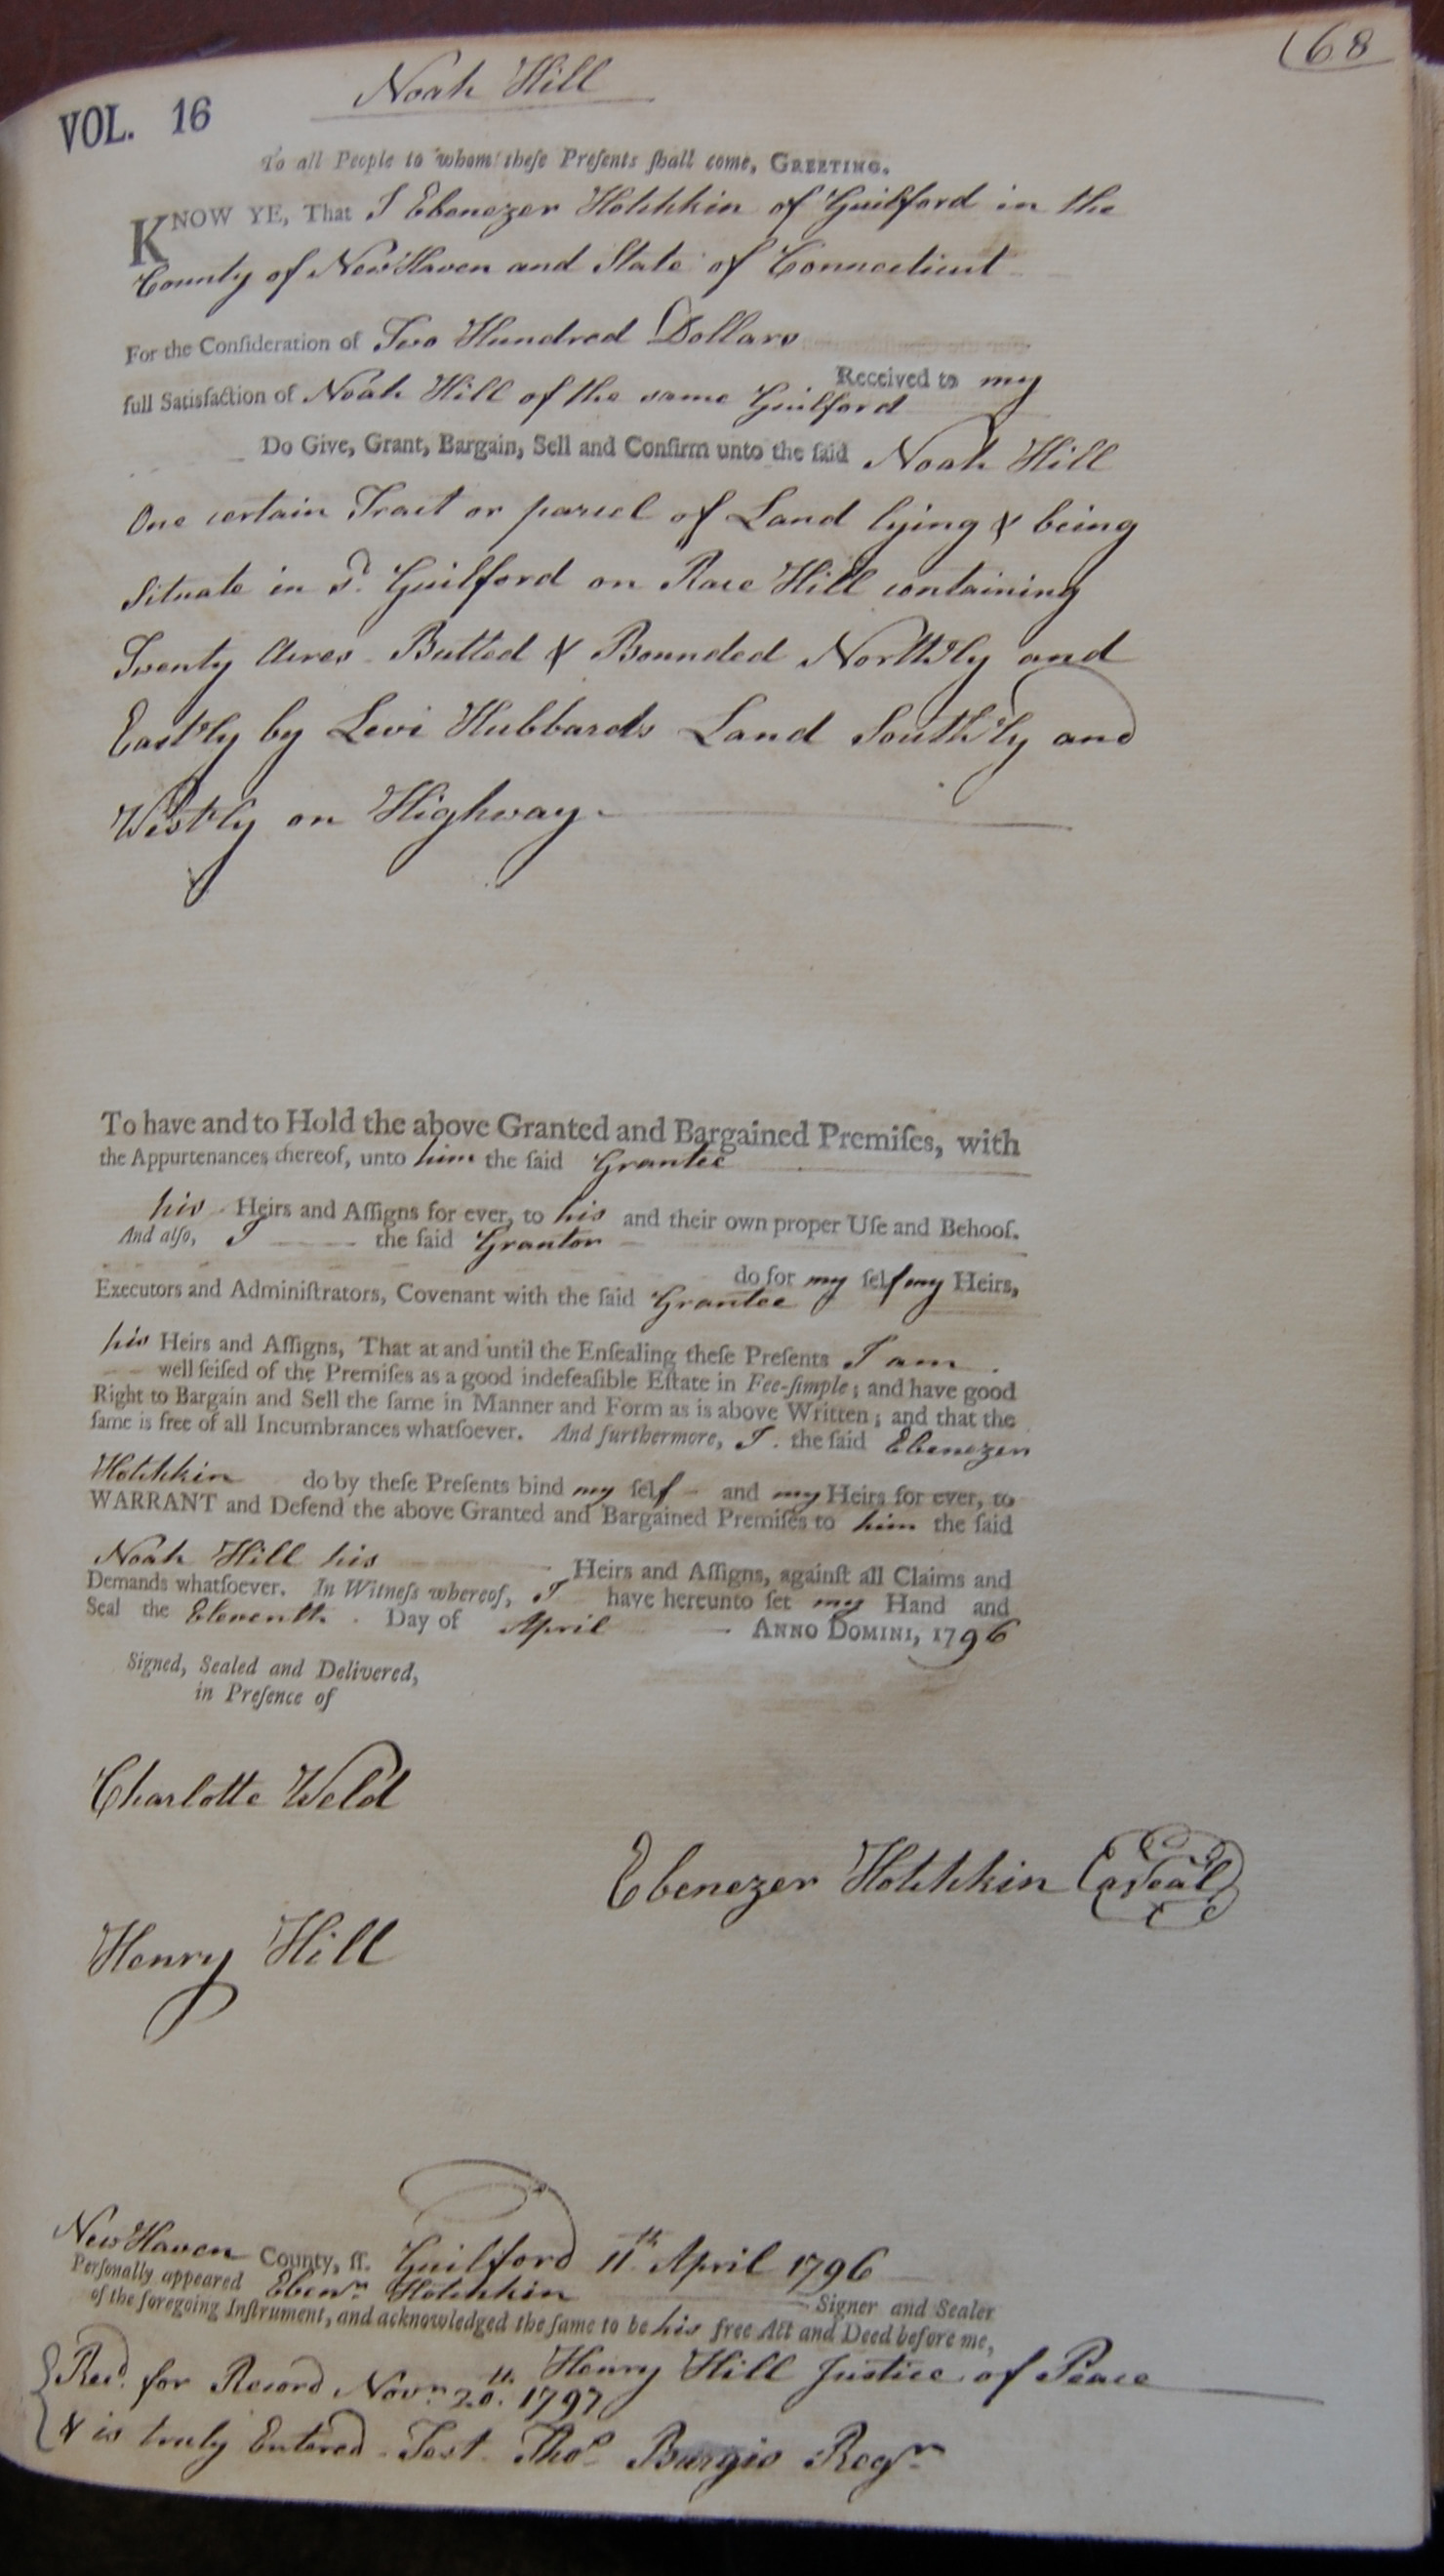 (68
Noah Hill
VOL. 16
To all People to whom theſe Preſents ſhall come, GREETING.
KNOW YE, That I Ebenezer Hotchkin of Guilford in the
County of New Haven and State of Connecticut
For the Conſideration of Two Hundred Dollars
Received to my
full Satisfaction of Noah Hill of the same Guilford
Do Give, Grant, Bargain, Sell and Confirm unto the ſaid Noah Hill
One certain Tract or parcel of Land lying & being
Situate in sd. Guilford on Race Hill containing
Twenty Acres Butted & Bounded Northly and
Eastly by Levi Hubbards Land Southly and
Westly on Highway
To have and to Hold the above Granted and Bargained Premiſes, with
the Appurtenances thereof, unto him the ſaid Grantee
his Heirs and Aſſigns for ever, to his and their own proper Uſe and Behoof.
And alſo, I the ſaid Grantor
do for my ſelf my Heirs,
Executors and Adminiſtrators, Covenant with the ſaid Grantee
his Heirs and Aſſigns, That at and until the Enſealing theſe Preſents I am
well ſeiſed of the Premiſes as a good indefeaſible Eſtate in Fee-ſimple; and have good
Right to Bargain and Sell the ſame in Manner and Form as is above Written; and that the
ſame is free of all Incumbrances whatſoever. And furthermore, I the ſaid Ebenezer
Hotchkin do by theſe Preſents bind my ſelf and my Heirs for ever, to
WARRANT and Defend the above Granted and Bargained Premiſes to him the ſaid
Noah Hill his Heirs and Aſſigns, againſt all Claims and
Demands whatſoever. In Witneſs whereof, I have hereunto ſet my Hand and
Seal the Eleventh Day of April ANNO DOMINI, 1796
Signed, Sealed and Delivered,
in Preſence of
Charlotte Weld
Ebenezer Hotchkin a Seal
Henry Hill
New Haven County, ſſ. Guilford 11th April 1796
Perſonally appeared Ebenr Hotchkin Signer and Sealer
of the foregoing Inſtrument, and acknowledged the ſame to be his free Act and Deed before me,
Henry Hill Justice of Peace
Recd. for Record Novr. 20th. 1797
& is truly Entered Test Thos Burgis Regr